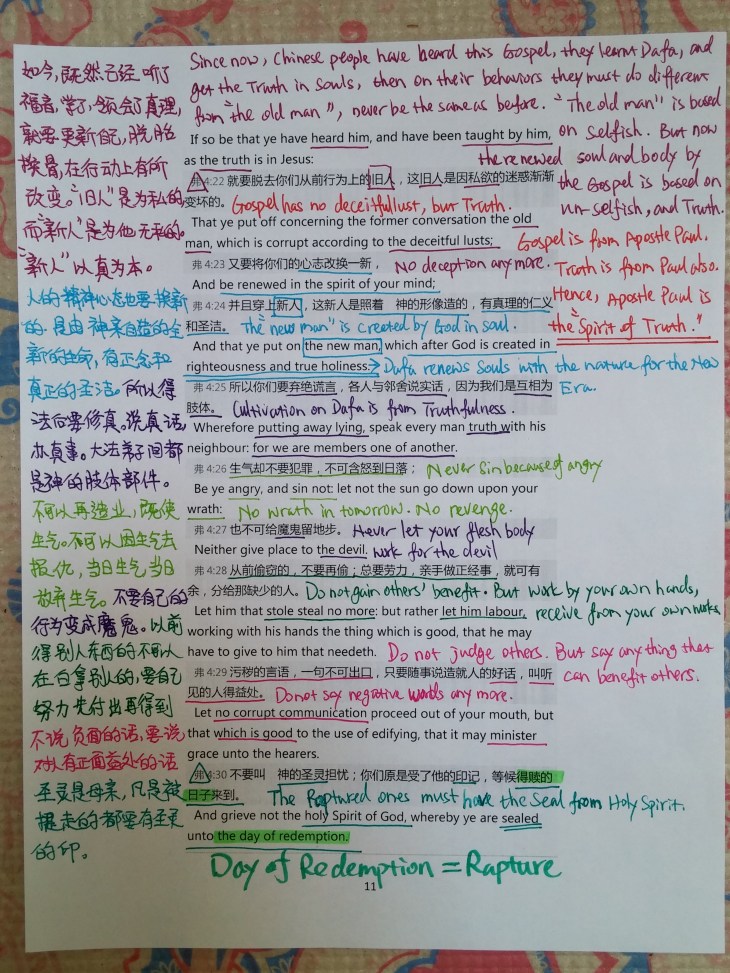 Since now, Chinese people have heard this Gospel, they learnt Dafa, and
get the Truth in Souls, then on their behaviors they must do different
from "the old man", never be the same as before. "The old man" is based
on selfish. But now
the renewed soul and body by
the Gospel is based on
un-selfish, and Truth.
如今,既然已经听了
福音,学了,领会了真理,
就要更新自己,脱胎
换骨,在行动上有所
改变。"旧人"是为私的,
而"新人"是为他无私的。
"新人"以真为本。
人的精神心态也要换新
的,是由神亲自造的全
新的生命,有正念和
真正的圣洁。所以得
法后要修真。说真话,
办真事。大法弟子间都
是神的肢体部件。
不可以再造业,既使
生气。不可以因生气去
报仇,当日生气当日
放弃生气。不要自己的
行为变成魔鬼。以前
得别人东西的不可以
在白拿别人的,要自己
努力先付出再得到
不说负面的话,要说
对人有正面益处的话
圣灵是母亲,凡是被
提走的都要有圣灵
的印。
If so be that ye have heard him, and have been taught by him,
as the truth is in Jesus:
弗 4:22 就要脱去你们从前行为上的旧人,这旧人是因私欲的迷惑渐渐
变坏的。 Gospel has no deceitful lust, but Truth.
That ye put off concerning the former conversation the old
man, which is corrupt according to the deceitful lusts;
Gospel is from Apostle Paul.
Truth is from Paul also.
Hence, Apostle Paul is
the "Spirit of Truth."
弗 4:23 又要将你们的心志改换一新, No deception any more.
And be renewed in the spirit of your mind;
弗 4:24 并且穿上新人,这新人是照着 神的形像造的,有真理的仁义
和圣洁。 The "new man" is created by God in soul.
And that ye put on the new man, which after God is created in
righteousness and true holiness. → Dafa renews Souls with the nature for the New
Era.
弗 4:25 所以你们要弃绝谎言,各人与邻舍说实话,因为我们是互相为
肢体。 Cultivation on Dafa is from Truthfulness.
Wherefore putting away lying, speak every man truth with his
neighbour: for we are members one of another.
弗 4:26 生气却不要犯罪,不可含怒到日落; Never Sin because of angry
Be ye angry, and sin not: let not the sun go down upon your
wrath: No wrath in tomorrow. No revenge.
弗 4:27 也不可给魔鬼留地步。 Never let your flesh body
Neither give place to the devil. work for the devil
弗 4:28 从前偷窃的,不要再偷;总要劳力,亲手做正经事,就可有
余,分给那缺少的人。 Do not gain others' benefit. But work by your own hands,
Let him that stole steal no more: but rather let him labour, receive from your own works
working with his hands the thing which is good, that he may
have to give to him that needeth. Do not judge others. But say any thing that
can benefit others.
弗 4:29 污秽的言语,一句不可出口,只要随事说造就人的好话,叫听
见的人得益处。 Do not say negrative words any more.
Let no corrupt communication proceed out of your mouth, but
that which is good to the use of edifying, that it may minister
grace unto the hearers.
弗 4:30 不要叫 神的圣灵担忧;你们原是受了他的印记,等候得赎的
日子来到。 The Raptured ones must have the Seal from Holy Spirit.
And grieve not the holy Spirit of God, whereby ye are sealed
unto the day of redemption.
Day of Redemption = Rapture
11